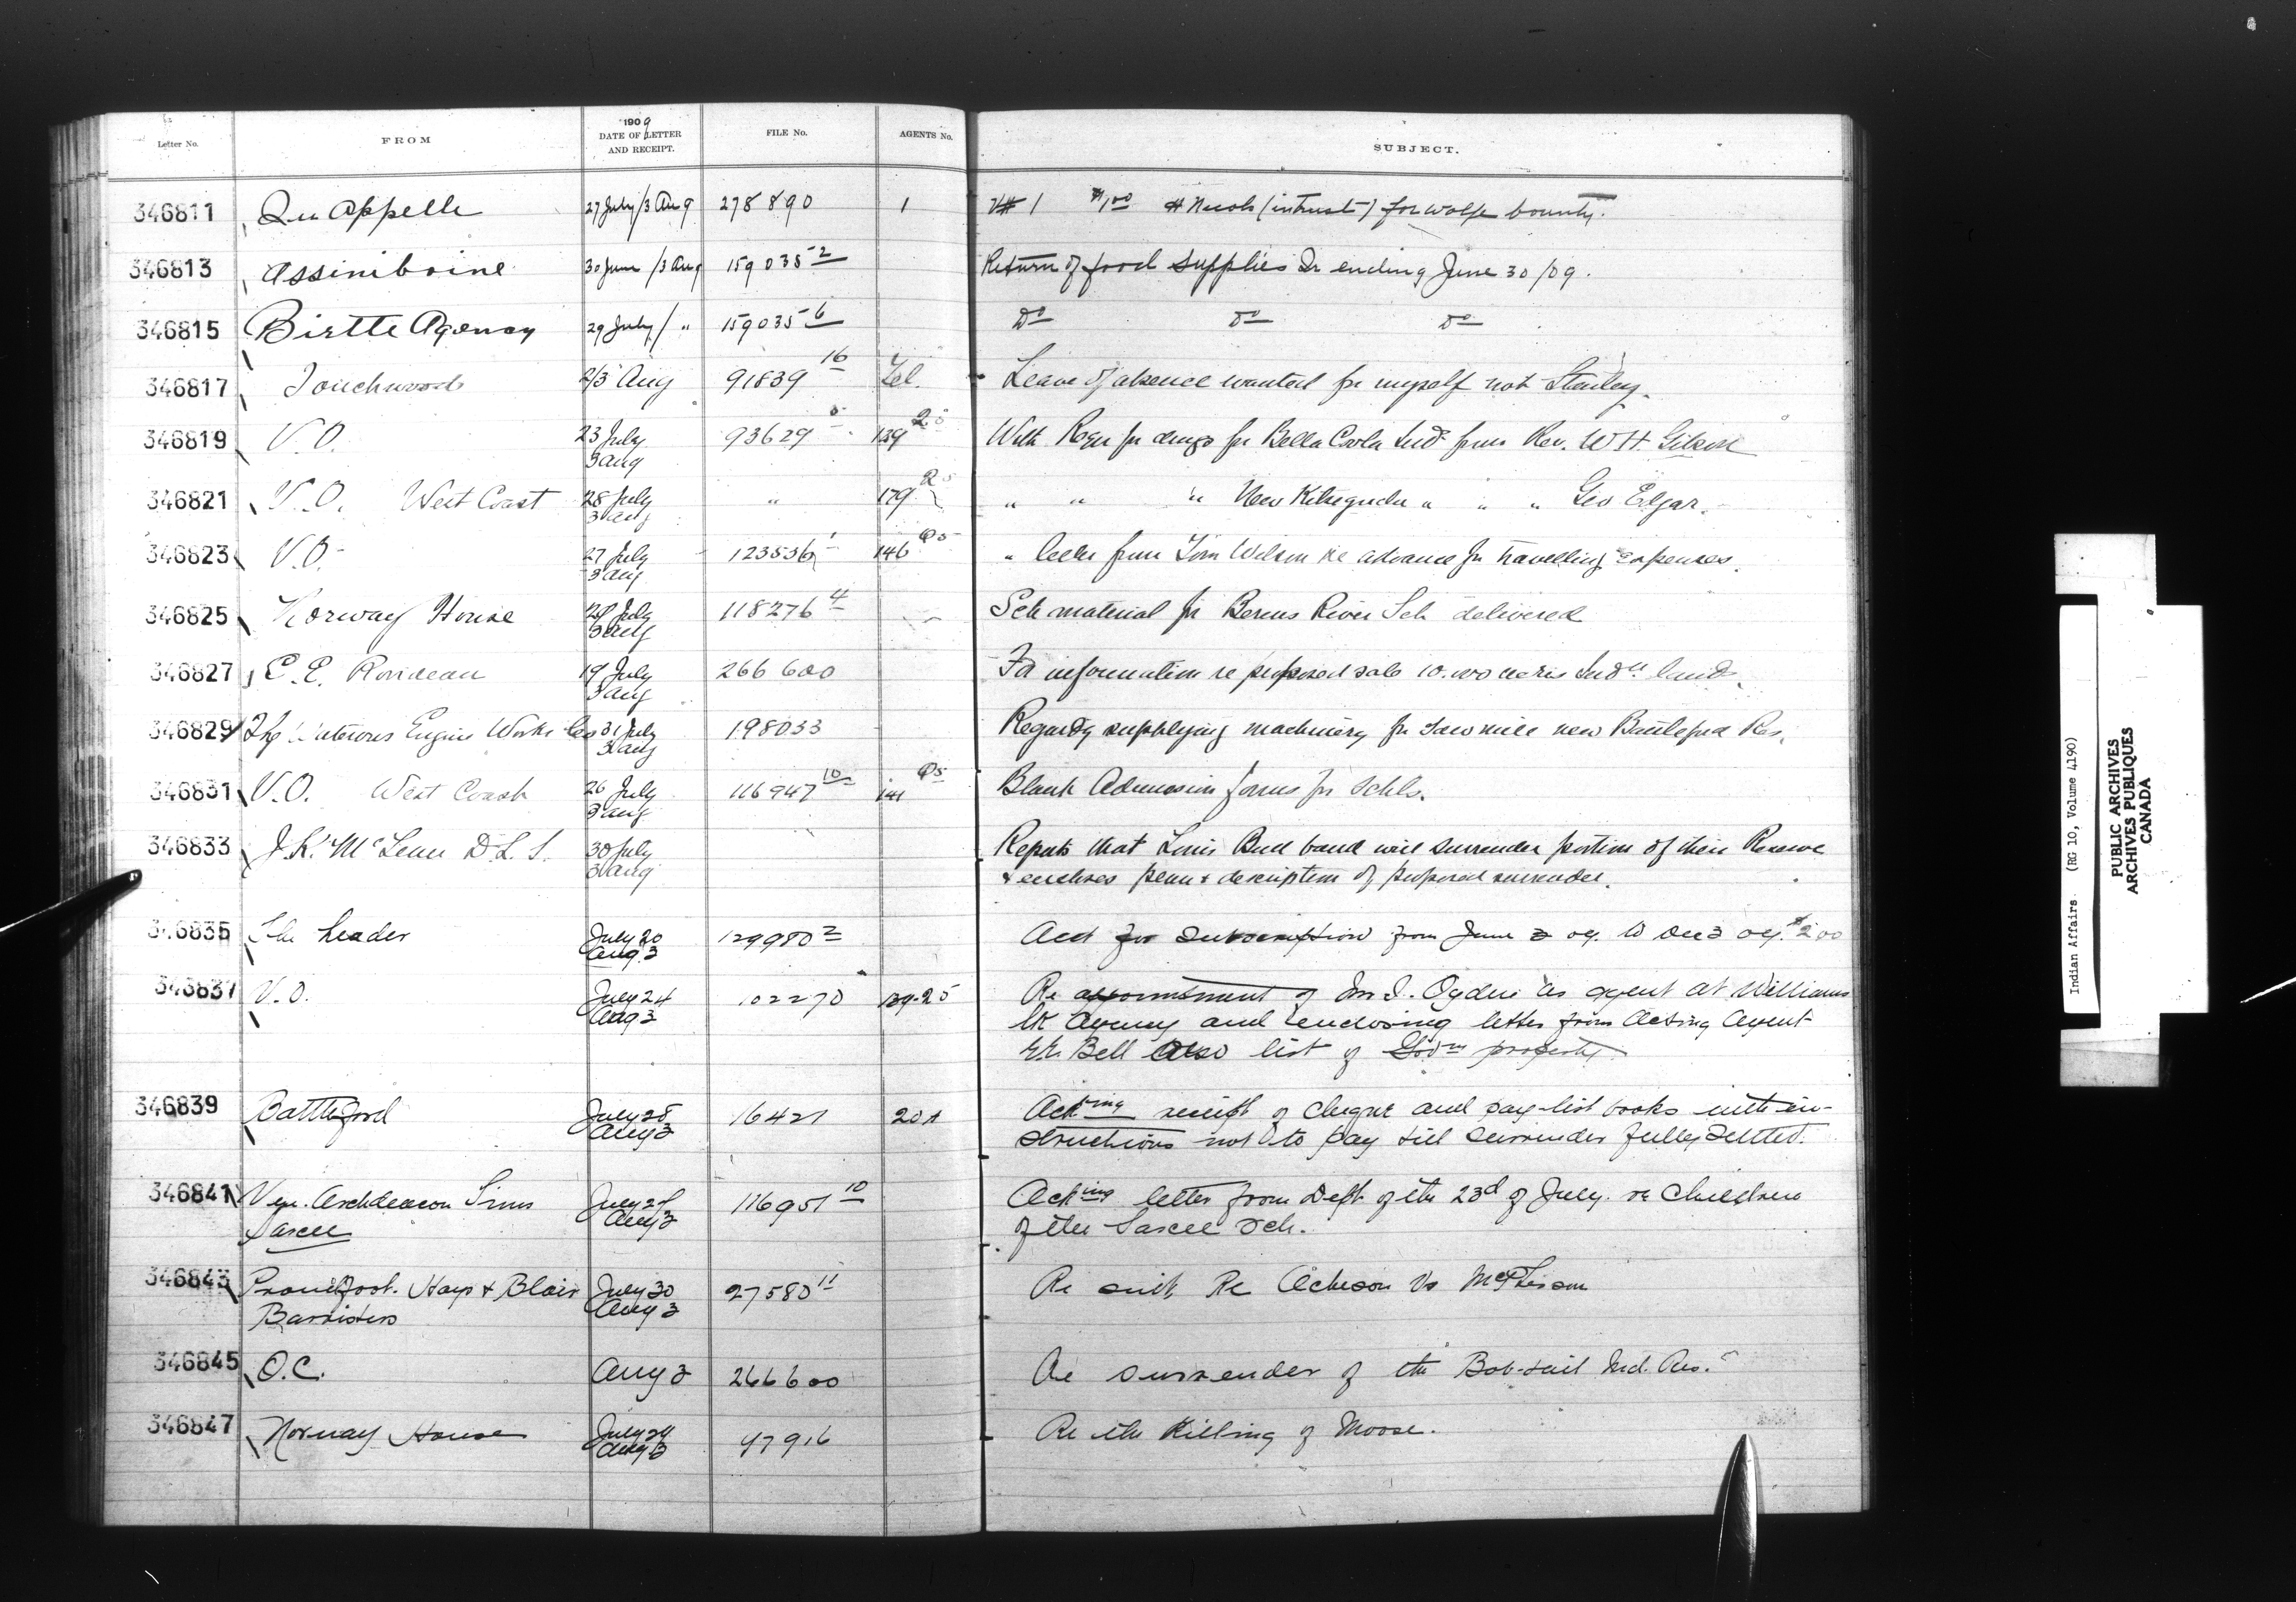 Letter No. FROM 1909 DATE OF LETTER AND RECEIPT. FILE No. AGENTS No. SUBJECT.
346811 Qu Appelle 27 July/3 Aug 278890 1 V# 1 $1.00 for wolf bounty.
346813 Assiniboine 30 June/3 Aug 159035-2 Return of food supplies Qr ending June 30/09.
346815 Birtle Agency 29 July/ " 159035-6 Do Do Do
346817 Touchwood 2/3 Aug 91839 16 Tel. Leave of absence wanted for myself not Stanley.
346819 V.O. 23 July 93629 139 25 With Reqn for drugs for Bella Coola Inds from Rev. W H Gibson
3 Aug
346821 V.O. West Coast 28 July " 179 " " " New Kitzegucla " " " Geo Edgar.
3 Aug
346823 V.O. 27 July 123536 1 146 " letter from Tom Wilson re advance for travelling expenses.
3 Aug
346825 Norway House 29 July 118276 4 Sch material for Berens River Sch delivered
3 Aug
346827 C.E. Rondeau 19 July 266600 For information re proposed sale 10.000 acres Indn land.
3 Aug
346829 The Waterous Engine Works Co 31 July 198033 Regardg supplying machinery for sawmill new Battleford Res.
3 Aug
346831 V.O. West Coast 26 July 116947 10 141 Blank Admission forms for schls.
3 Aug
346833 J.K. McLean D.L.S. 30 July Reports that Louis Bull band will surrender portion of their Reserve
3 Aug & encloses plan & description of proposed surrender.
346835 The Leader July 20 129980 2 Acct for subscription from June 3 09. to Dec 3 09. $2.00
Aug 3
346837 V.O. July 24 102270 139-25 Re appointment of Mr I. Ogden as agent at Williams
Aug 3 Lk Agency and enclosing letter from Acting Agent
E. Bell Also list of Govm property.
346839 Battleford July 28 16421 201 Acking receipt of cheque and pay-list books with in-
Aug 3 structions not to pay till surrender fully settled.
346841 Ven. Archdeacon Tims July 28 116951 10 Acking letter from Dept of the 23d of July. re children
Sarcee Aug 3 of the Sarcee Sch.
346843 Proudfoot. Hays & Blair July 30 27580 11 Re suit Re Acheson Vs McPherson
Barristers Aug 3
346845 O.C. Aug 3 266600 Re surrender of the Bob-tail Ind. Res.
346847 Norway House July 29 47916 Re the Killing of Moose.
Aug 3
Indian Affairs. (RG 10, Volume 4190)
PUBLIC ARCHIVES
ARCHIVES PUBLIQUES
CANADA